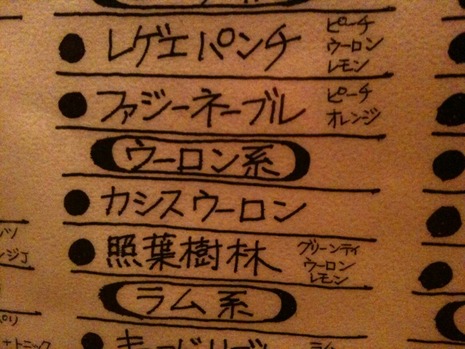 レゲエパンチ
ピーチ
ウーロン
レモン
ファジーネーブル
ピーチ
オレンジ
ウーロン系
カシスウーロン
照葉樹林
グリーンティ
ウーロン
レモン
ラム系